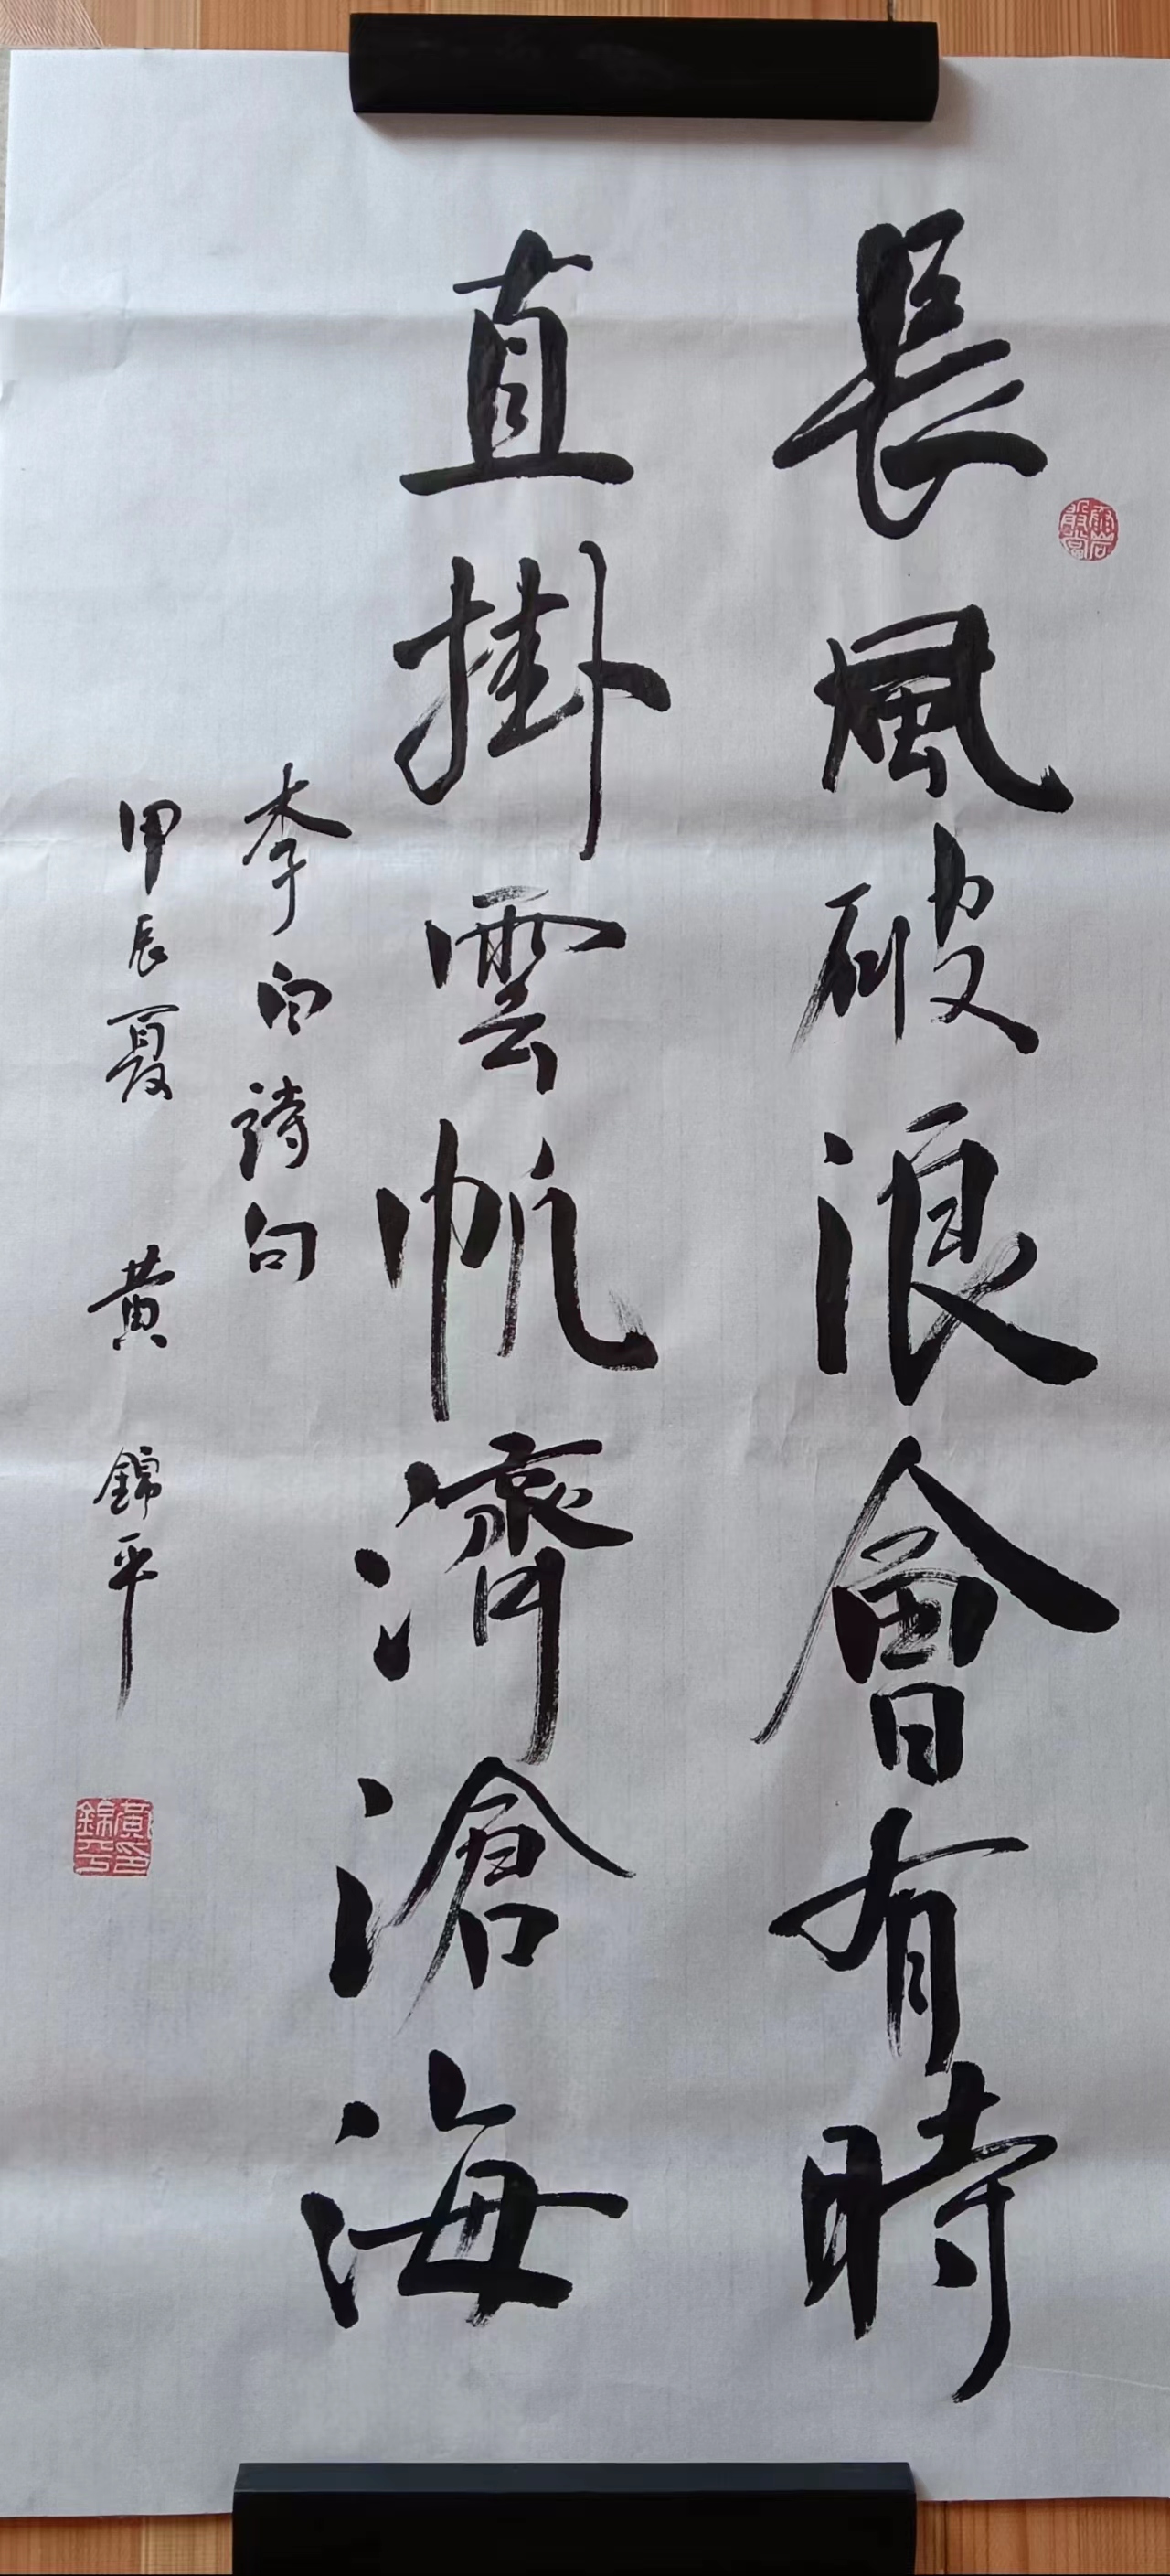 長風破浪會有時
直掛雲帆濟滄海
李白詩句
甲辰夏 黄錦平
黄錦平印